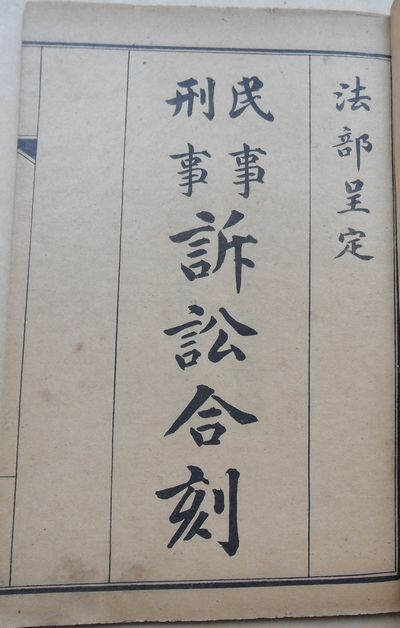 法部呈定
民事
刑事
訴訟合刻